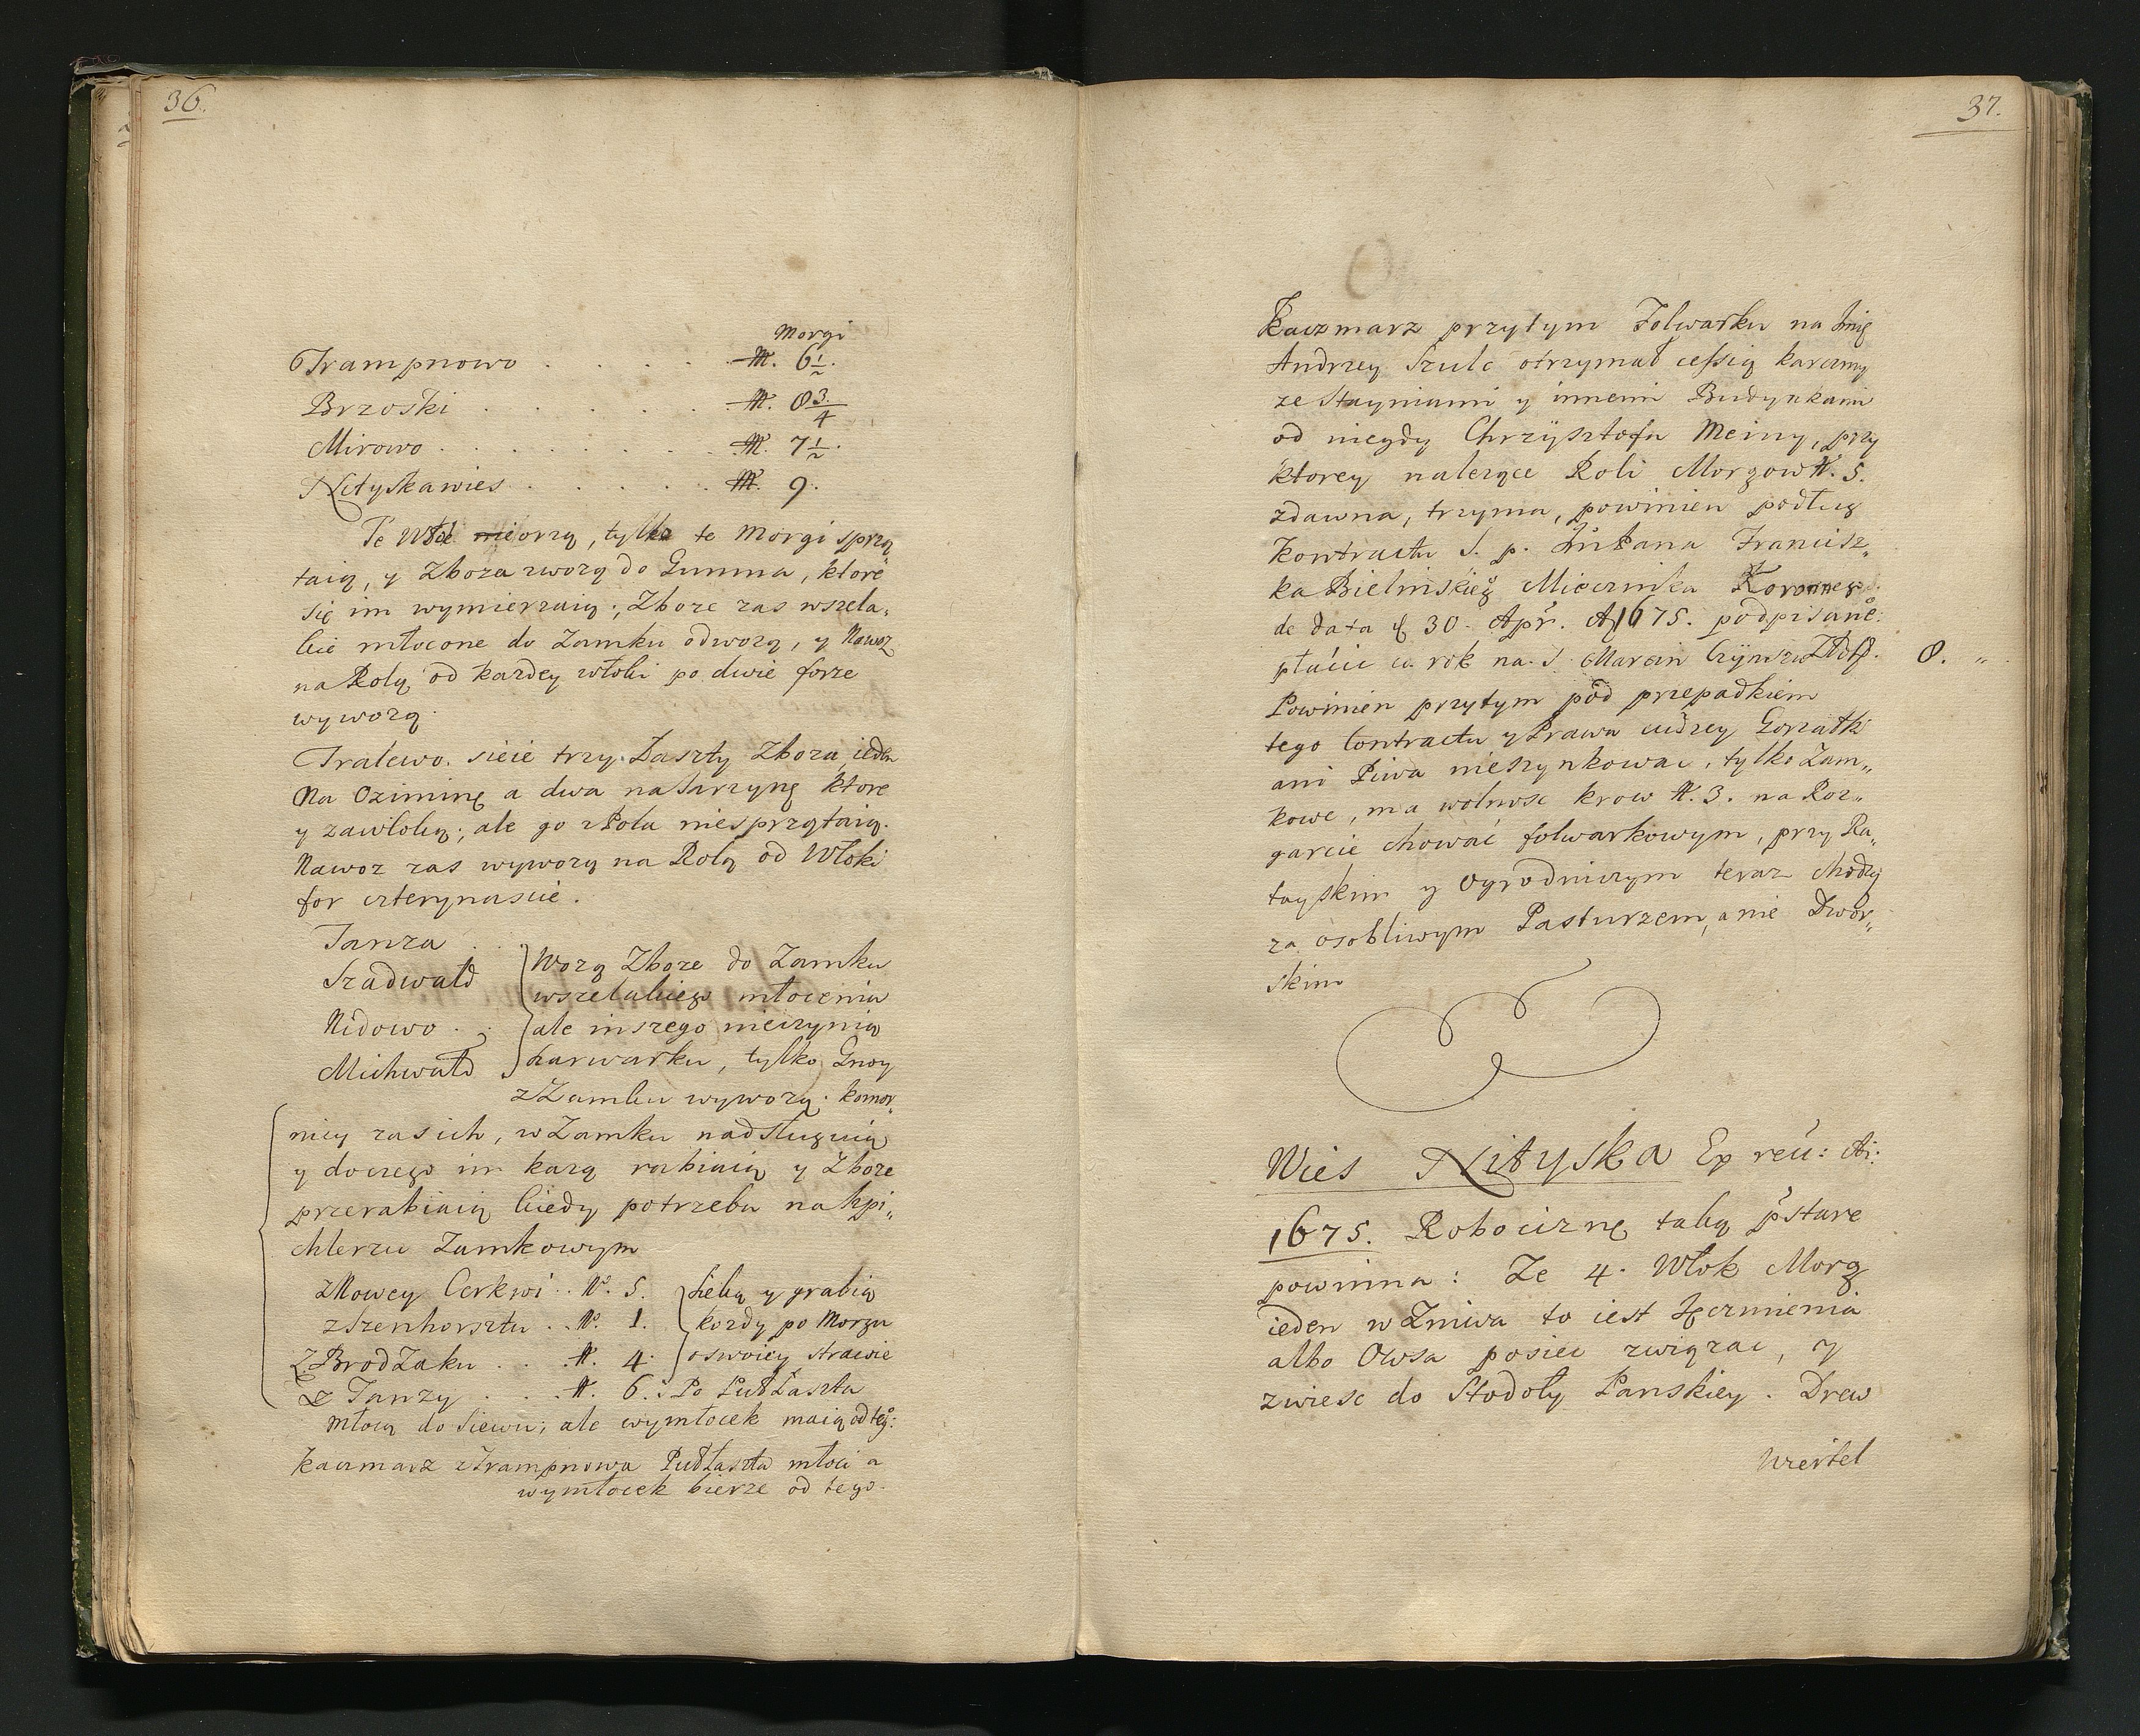 36.
Morgi
Trampnowo . . . . N. 6 1/2.
Brzoski . . . . . . N. 8 3/4
Mirowo . . . . . . . N. 7 1/2.
Nityskawies . . . . . N. 9.
Te Wsie nieorzą, tylko te Morgi sprzą
taią, y Zboza zwozą do Gumna, ktore
się im wymierzaią; Zboze zas wszela„
kie młocone do Zamku odwozą, y Nawoz
na Rolą od kazdey włoki po dwie forze
wywozą.
Tralewo. sieie trzy Łaszty Zboza, ieden
Na Oziminę a dwa na Jarzynę ktore
y zawloką; ale go z Pola niesprzątaią.
Nawoz zas wywozą na Rolą od Włoki
for czterynascie.
Janza
Szadwald
Nidowo . .
Michwald
Wozą Zboze do Zamku
wszelakiego młocenia
ale inszego nieczynią
szarwarku, tylko Gnoy
z Zamku wywozą. komor„
nicy zas ich, w Zamku nadsługuią
y do czego im kazą rabiaią y Zboze
przerabiaią kiedy potrzeba na szpi„
chlerzu Zamkowym
z Nowey Cerkwi . . No. 5.
z Szenhorsztu . . No. 1.
Z BrodZaku . . . N. 4.
Z Janzy . . . N. 6. : Po Puł Łaszta
Sieką y grabią
kozdy po Morgu
o swoiey strawie
młocą do Siewu; ale wymłocek maią od teg:
Kaczmarz z Trampnowa Puł Łaszta młoci a
wymłocek bierze od tego.
37.
Kaczmarz przytym Folwarku na Imię
Andrzey Szulc otrzymał cessią karczmy
ze Stayniami y innemi Budynkami
od niegdy Chrzysztofa Meiny, przy
ktorey nalezące Roli Morgow N. 5.
zdawna, trzyma, powinien podług
Kontractu S. p. Jmć Pana Francisz„
ka Bielinskieg Miecznika Koronneg
de data 30. Apr. A 1675. podpisane:
płacić co rok na S. Marcin Czynszu Zł. 8. „
Powinien przytym pod przepadkiem
tego Contractu y Prawa cudzey Gorzałki
ani Piwa nieszynkowac, tylko Zam„
kowe, ma wolnosc krow N. 3. na Roz„
garcie chować folwarkowym, przy Ra„
tayskim y Ogrodniczym teraz chodzą
za osobliwym Pasturzem, a nie Dwor„
skim
Wies Nityska Ex reu: Ai:
1675. Robociznę taką pstare
powinna: Ze 4. Włok Morg
ieden w Zniwa to iest Jęczmienia
albo Owsa posiec związac, y
zwiesc do Stodoły Panskiey. Drew
Wiertel